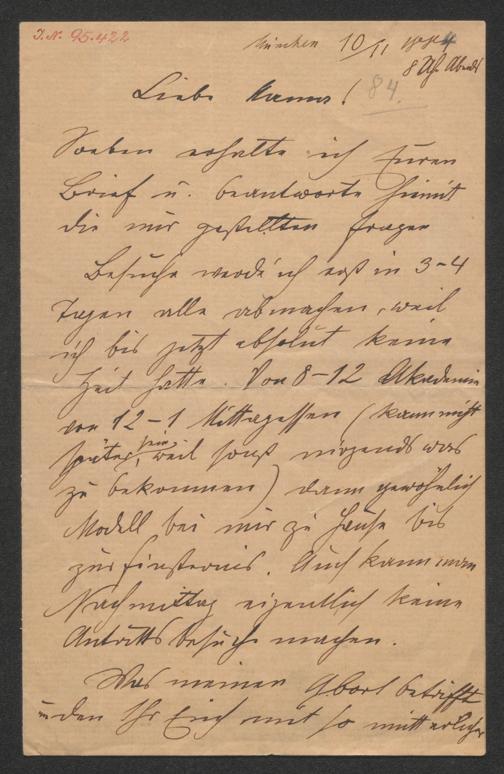 J.N. 95.422
München 10/11
8 Uhr Abends
84.
Liebe Mama!
Soeben erhalte ich Euren
Brief u. beantworte hiemit
die mir gestellten Fragen
Besuche werde ich erst in 3-4
Tagen alle abmachen, weil
ich bis jetzt absolut keine
Zeit hatte. Von 8-12 Akademie
von 12-1 Mittagessen (kann nicht
später sein, weil sonst nirgends was
zu bekommen) dann gewöhnlich
Modell bei mir zu Hause bis
zur Finsternis. Auch kann man
Nachmittag eigentlich keine
Antrittsbesuche machen.
Was meinen betrifft
um den Ihr Euch mit so mütterlicher